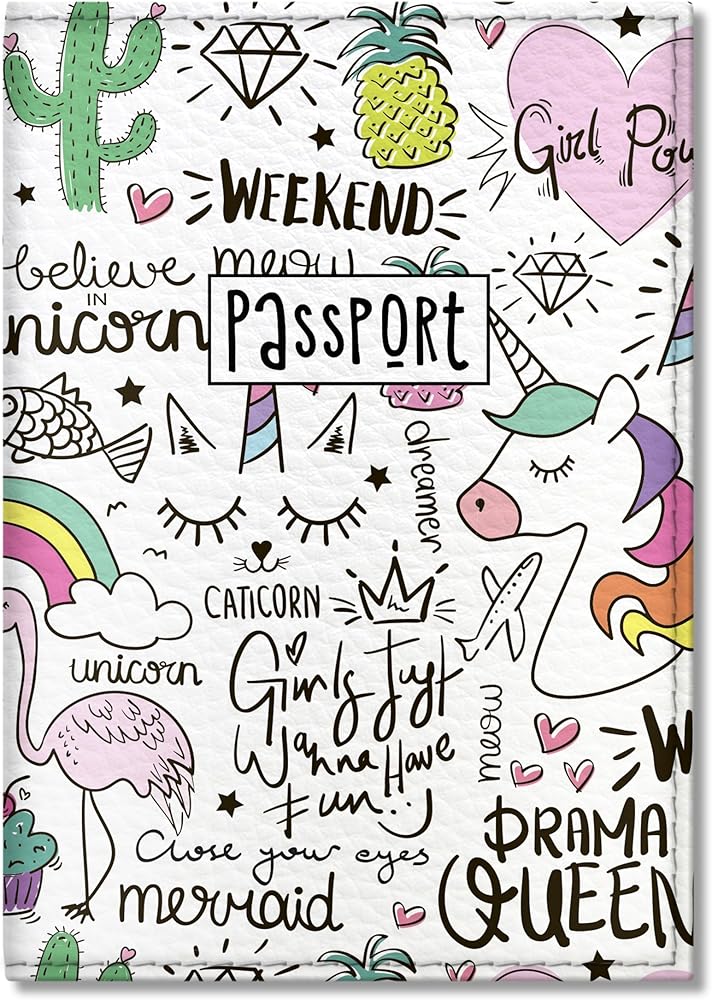 Girl Pow
WEEKEND
believe
IN
nicorn
meow
Passport
dreamer
CATICORN
unicorn
Girls Just
Wanna Have
Fun
meow
W
DRAMA
QUEEN
Close your eyes
mermaid